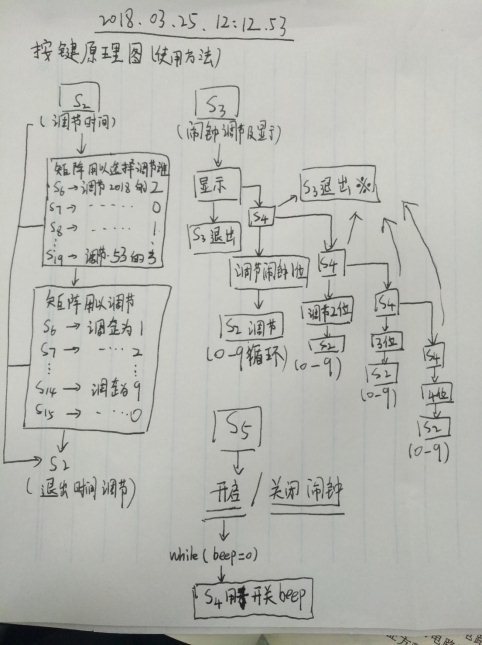 2018.03.25.12:12.53
按键原理图(使用方法)
S2
(调节时间)
矩阵用以选择调节谁
S6→调节2018的2
S7→ ····· 0
S8→ ····· 1
⋮
S19→调节.53的3
矩阵用以调节
S6 → 调整为1
S7 → ····· 2
⋮
S14 → 调整为9
S15 → ····· 0
S2
(退出时间调节)
S3
(闹钟调节及显示)
显示
S3退出
S4
S3退出※
调节闹钟1位
S2调节
(0-9循环)
S4
调节2位
S2
(0-9)
S4
3位
S2
(0-9)
S4
4位
S2
(0-9)
S5
开启/关闭闹钟
while(beep=0)
S4用来开关beep